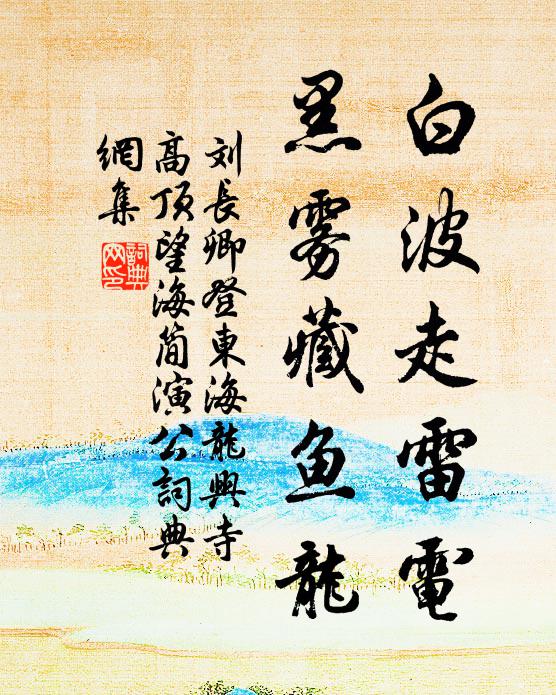 白波走雷電
黑雾藏鱼龍
刘長卿登東海龍興寺
高顶望海简演公詞典
網集
詞典
网印